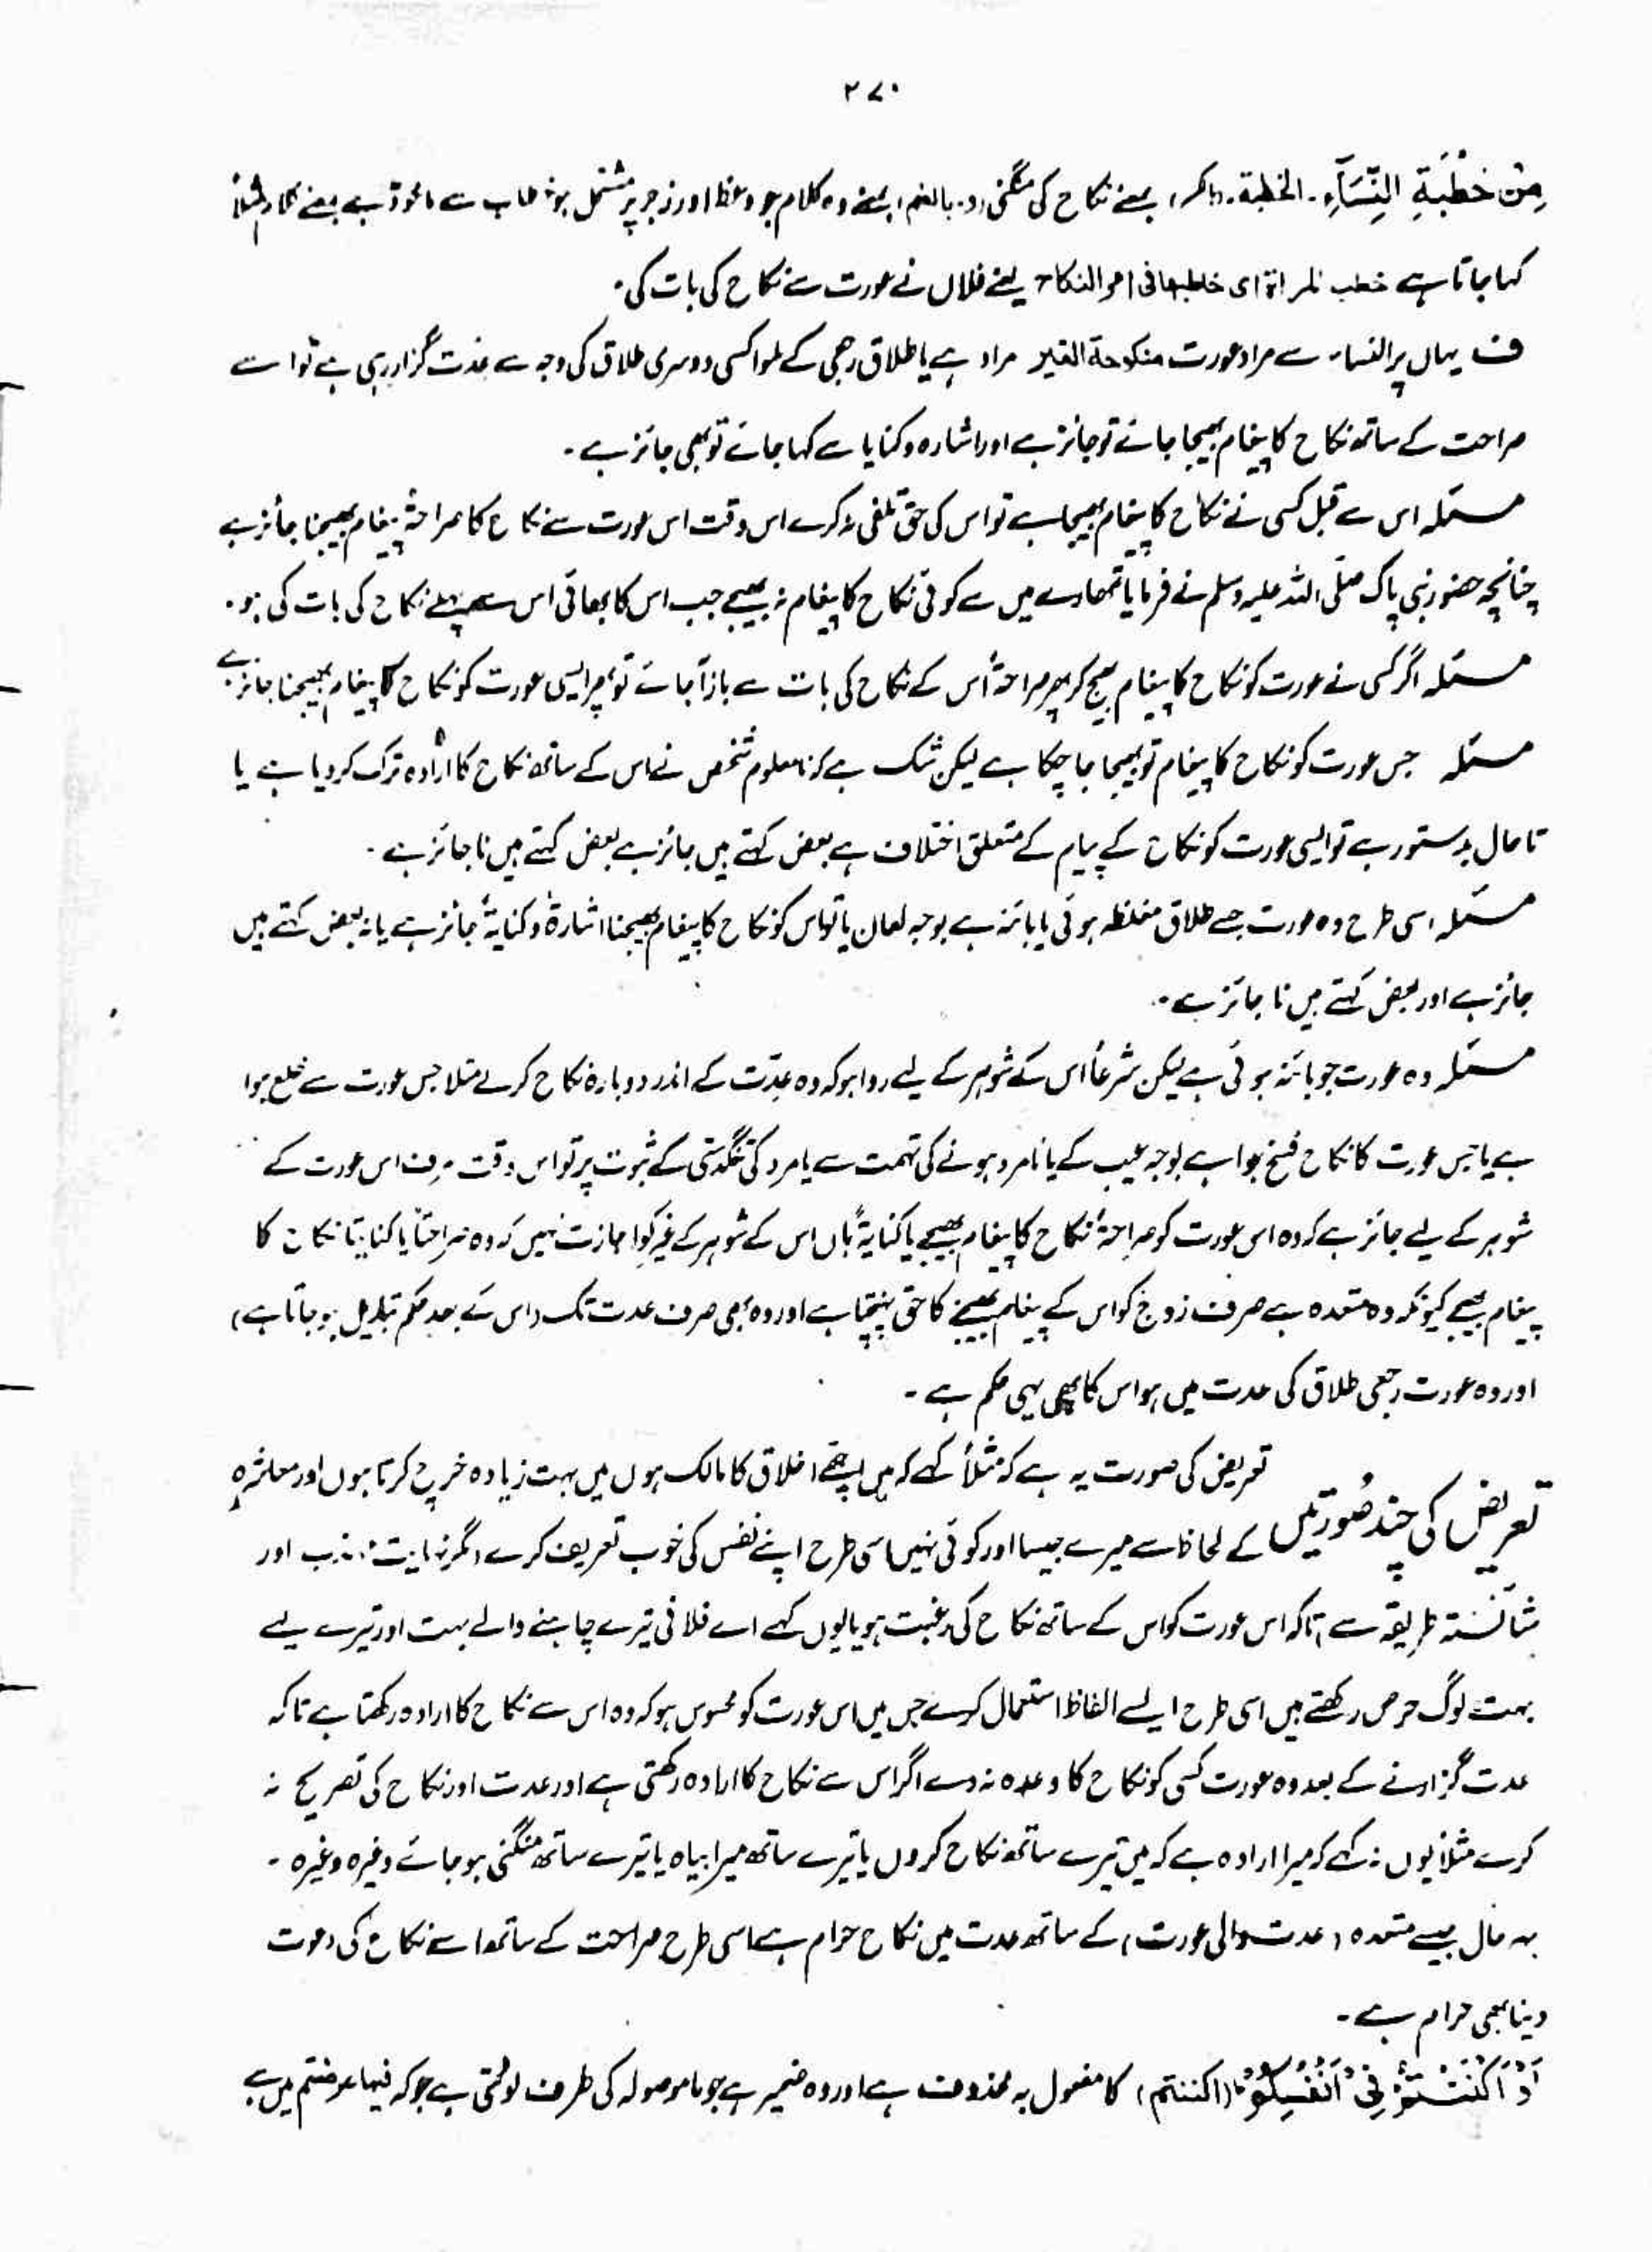 ۲۷۰
مِنْ خِطْبَةِ النِّسَآءِ۔ الخطبة۔ (بالکسر) بمعنے نکاح کی منگنی (و۔ بالضم) بمعنے وہ کلام جو وعظ اور زجر پر مشتمل ہو خطاب سے ماخوذ ہے بمعنے کلام مثلاً
کہا جاتا ہے خطب المراۃ ای خاطبها فی امر النکاح یعنے فلاں نے عورت سے نکاح کی بات کی۔
ف یہاں پر النساء سے مراد عورت منکوحة الغیر مراد ہے یا طلاق رجعی کے سوا کسی دوسری طلاق کی وجہ سے عدت گزار رہی ہے تو اسے
صراحت کے ساتھ نکاح کا پیغام بھیجا جائے تو جائز ہے اور اشارہ و کنایا سے کہا جائے تو بھی جائز ہے۔
مسئلہ اس سے قبل کسی نے نکاح کا پیغام بھیجا ہے تو اس کی حق تلفی نہ کرے اس وقت اس عورت سے نکاح کا صراحۃً پیغام بھیجنا جائز ہے
چنانچہ حضور نبی پاک صلّی اللہ علیہ وسلم نے فرمایا تمھارے میں سے کوئی نکاح کا پیغام نہ بھیجے جب اس کا بھائی اس سے پہلے نکاح کی بات کی ہو۔
مسئلہ اگر کسی نے عورت کو نکاح کا پیغام بھیج کر پھر صراحۃً اُس کے نکاح کی بات سے باز آ جائے تو پھر ایسی عورت کو نکاح کا پیغام بھیجنا جائز ہے
مسئلہ جس عورت کو نکاح کا پیغام تو بھیجا جا چکا ہے لیکن شک ہے کہ نامعلوم شخص نے اس کے ساتھ نکاح کا ارادہ ترک کر دیا ہے یا
تا حال بدستور ہے تو ایسی عورت کو نکاح کے پیام کے متعلق اختلاف ہے بعض کہتے ہیں جائز ہے بعض کہتے ہیں ناجائز ہے۔
مسئلہ اسی طرح وہ عورت جسے طلاق مغلظہ ہوئی یا بائنہ ہے بوجہ لعان یا تو اس کو نکاح کا پیغام بھیجنا اشارۃً و کنایۃً جائز ہے یا نہ بعض کہتے ہیں
جائز ہے اور بعض کہتے ہیں نا جائز ہے۔
مسئلہ وہ عورت جو بائنہ ہوئی ہے لیکن شرعاً اس کے شوہر کے لیے روا ہو کہ وہ عدّت کے اندر دوبارہ نکاح کر لے مثلا جس عورت سے خلع ہوا
ہے یا جس عورت کا نکاح فسخ ہوا ہے بوجہ عیب کے یا نامرد ہونے کی تہمت سے یا مرد کی تنگدستی کے ثبوت پر تو اس وقت صرف اس عورت کے
شوہر کے لیے جائز ہے کہ وہ اس عورت کو صراحۃً نکاح کا پیغام بھیجے یا کنایۃً ہاں اس کے شوہر کے غیر کو اجازت نہیں کہ وہ صراحتاً یا کنایتا نکاح کا
پیغام بھیجے کیونکہ وہ معتدہ ہے صرف زوج کو اس کے پیغام بھیجنے کا حق پہنچتا ہے اور وہ بھی صرف عدت تک (اس کے بعد حکم تبدیل ہو جاتا ہے)
اور وہ عورت رجعی طلاق کی عدت میں ہو اس کا بھی یہی حکم ہے۔
تعریض کی چند صُورتیں
تعریض کی صورت یہ ہے کہ مثلاً کہے کہ میں اچھے اخلاق کا مالک ہوں میں بہت زیادہ خرچ کرتا ہوں اور معاشرہ
کے لحاظ سے میرے جیسا اور کوئی نہیں اسی طرح اپنے نفس کی خوب تعریف کرے (مگر نہایت مہذب اور
شائستہ طریقہ سے) تاکہ اس عورت کو اس کے ساتھ نکاح کی رغبت ہو یا یوں کہے اے فلانی تیرے چاہنے والے بہت اور تیرے لیے
بہت لوگ حرص رکھتے ہیں اسی طرح ایسے الفاظ استعمال کرے جس میں اس عورت کو محسوس ہو کہ وہ اس سے نکاح کا ارادہ رکھتا ہے تاکہ
عدت گزارنے کے بعد وہ عورت کسی کو نکاح کا وعدہ نہ دے اگر اس سے نکاح کا ارادہ رکھتی ہے اور عدت اور نکاح کی تصریح نہ
کرے مثلاً یوں نہ کہے کہ میرا ارادہ ہے کہ میں تیرے ساتھ نکاح کروں یا تیرے ساتھ میرا بیاہ یا تیرے ساتھ منگنی ہو جائے وغیرہ وغیرہ۔
بہرحال جیسے معتدہ (عدت والی عورت) کے ساتھ عدت میں نکاح حرام ہے اسی طرح صراحت کے ساتھ اسے نکاح کی دعوت
دینا بھی حرام ہے۔
اَوْ اَكْنَنْتُمْ فِیْ اَنْفُسِكُمْ (اکننتم) کا مفعول بہ محذوف ہے اور وہ ضمیر ہے جو ما موصولہ کی طرف لوٹتی ہے جو کہ فیما عرضتم میں ہے